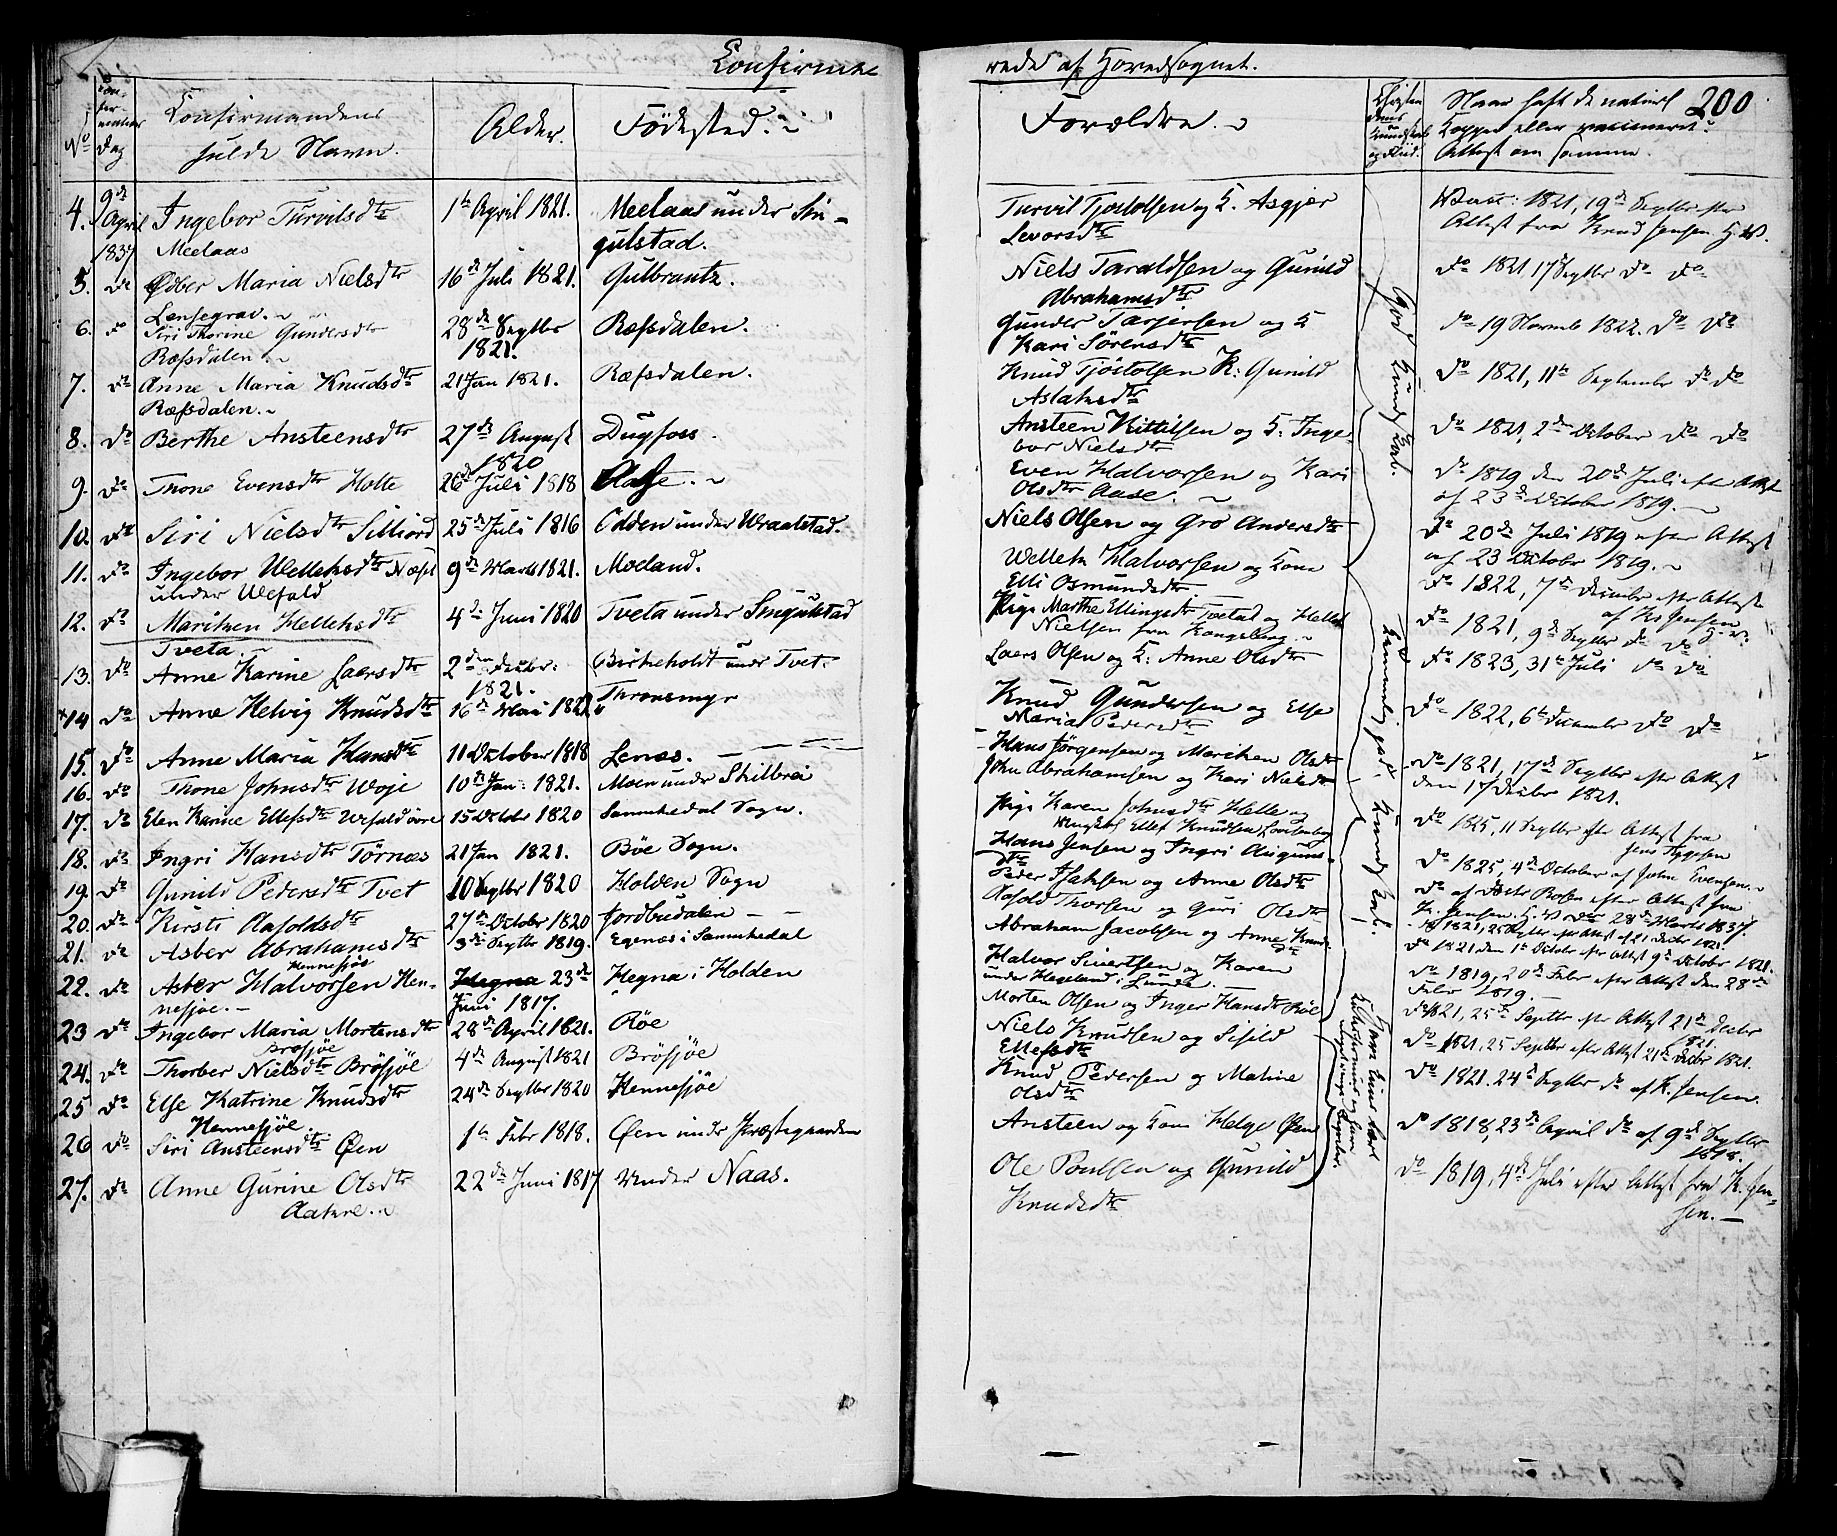 Confirmerede af Hovedsognet.
200
No
Con-
fir-
mations
Dag
Confirmandens
fulde Navn.
Alder.
Fødested.
Forældre.
Naar haft de naturl.
Kopper eller vaccineret
Attest om samme.
4. 9de April 1837 Ingebor Turvilsdtr 1te April 1821. Meelaas under Sin-
Meelaas
gulstad.
Turvil Tjostolsen og K. Asgjær
Levorsdtr
Vacc: 1821, 19de Septbr efter
Attest fra Knud Jensen H. W.
5. do Ødber Maria Nielsdtr 16de Juli 1821. Gulbrantz.
Lensegrav.
Niels Taraldsen og Gunild
Abrahamsdtr
do 1821, 17de Septbr do do
6. do Siri Thorine Gundersdtr 28de Septbr 1821. Ræfsdalen.
Ræfsdalen.
Gunder Tarjersen og K
Kari Sørensdtr
do 19 Novemb 1822. do do
7. do Anne Maria Knudsdtr 21 Jan 1821. Ræfsdalen.
Ræfsdalen.
Knud Tjöstolsen K: Gunild
Aslaksdtr
do 1821, 11te September do do
8. do Berthe Ansteensdtr 27de August 1820 Dugfoss.
Ansteen Kittilsen og K: Inge-
bor Nielsdtr
do 1821, 2den October do do
9. do Thone Evensdtr Holte 26de Juli 1818 Aase.
Even Halvorsen og Kari
Olsdtr Aase.
do 1819 den 20de Juli efter Attest
af 23de October 1819.
10. do Siri Nielsdtr Silliord 25de Juli 1816 Odden under Wraalstad.
Niels Olsen og Gro Andersdtr
do 20de Juli 1819 efter Attest
af 23 October 1819.
11. do Ingebor Wellehsdtr Næset 9de Marts 1821. Moeland.
under Wefald
Welleh Halvorsen og Kone
Elli Osmundsdtr
do 1822, 7de December efter Attest
af Ks Jensen
12. do Mariken Hellehsdtr 4de Juni 1820 Tveta under Singulstad
Tveta.
Pige Marthe Ellingsdtr Tvetad og Helleh
Nielsen fra Kongsberg.
do 1821, 9de Septbr do do
13. do Anne Karine Laersdtr 2den Decbr: 1821. Birkeholdt under Tvet.
Laers Olsen og K: Anne Olsdtr
do 1823, 31te Juli do do
14 do Anne Helvig Knudsdtr 16de Mai 1821 Thronsmyr
Knud Gundersen og Else
Maria Pedersdtr
do 1822, 6te December do do
15. do Anne Maria Hansdtr 11 October 1818 Lenæs.
Hans Jörgensen og Mariken Olsdtr
do 1821, 17de Septbr efter Attest
den 17 Decbr 1821.
16. do Thone Johnsdtr Woje 10de Jan: 1821. Moen under Skilbrei
John Abrahamsen og Kari Nielsdtr
17. do Elen Karine Ellefsdtr Wefald övre 15 October 1820 Sannikedal Sogn.
Pige Karen Johnsdtr Helle og
Ungkarl Ellef Knudsen Lovisenberg
do 1825, 11 Septbr efter Attest fra
Jens Aggesen
18. do Ingri Hansdtr Törnæs 21 Jan 1821. Böe Sogn.
Hans Jensen og Ingri Augunsdtr
do 1825, 4de October af John Evensen.
19. do Gunild Pedersdtr Tvet 10 Septbr 1820 Holden Sogn
Peder Isaksen og Anne Olsdtr
do af Doctr Bosen efter Attest fra
K. Jensen H. W. der 28de Marts 1837.
20. do Kirsti Aasoldsdtr 27de October 1820 Jordbudalen
Aasold Thorsen og Guri Olsdtr
do 1821, 25 Septbr efter Attest af 21 Decbr 1821.
21. do Asber Abrahamsdtr 3de Septbr 1819. Egenæs i Sannikedal
Hennesjöe
Abraham Jacobsen og Anne Knudsdtr
do 1821 den 1te October efter Attest 9de October 1821.
22. do Asber Halvorsen Hen- Hegna 23de Hegna i Holden
nesjöe. Juni 1817.
Halvor Sivertsen og Karen
under Haseland i Lunde.
do 1819, 20de Febr efter Attest den 28de
Febr 1819.
23 do Ingebor Maria Mortensdtr 28de April 1821. Röe
Brösjöe
Morten Olsen og Inger Hansdtr Röe
do 1821, 25de Septbr efter Attest 21de Decbr 1821.
24. do Thorber Nielsdtr Brösjöe 4de August 1821 Brösjöe
Niels Knudsen og Sefild
Ellefsdtr
do 1821, 25 Septbr efter Attest 21de Decbr 1821.
25 do Else Katrine Knudsdtr 24de Septbr 1820 Hennesjöe
Hennesjöe.
Knud Pedersen og Maline
Olsdtr
do 1821. 24de Septbr do af K. Jensen.
26 do Siri Ansteensdtr Øen 1te Febr 1818. Øen under Præstegaarden
Ansteen og Kone Helge Øen
do 1818, 23de April do af 9de Septbr
1818.
27. do Anne Gurine Olsdtr 22de Juni 1817 Under Naas.
Aature.
Ole Poulsen og Gunild
Knudsdtr
do 1819, 4de Juli efter Attest fra K. Jen-
sen.
God Kundskab.
Temmelig god Kundskab.